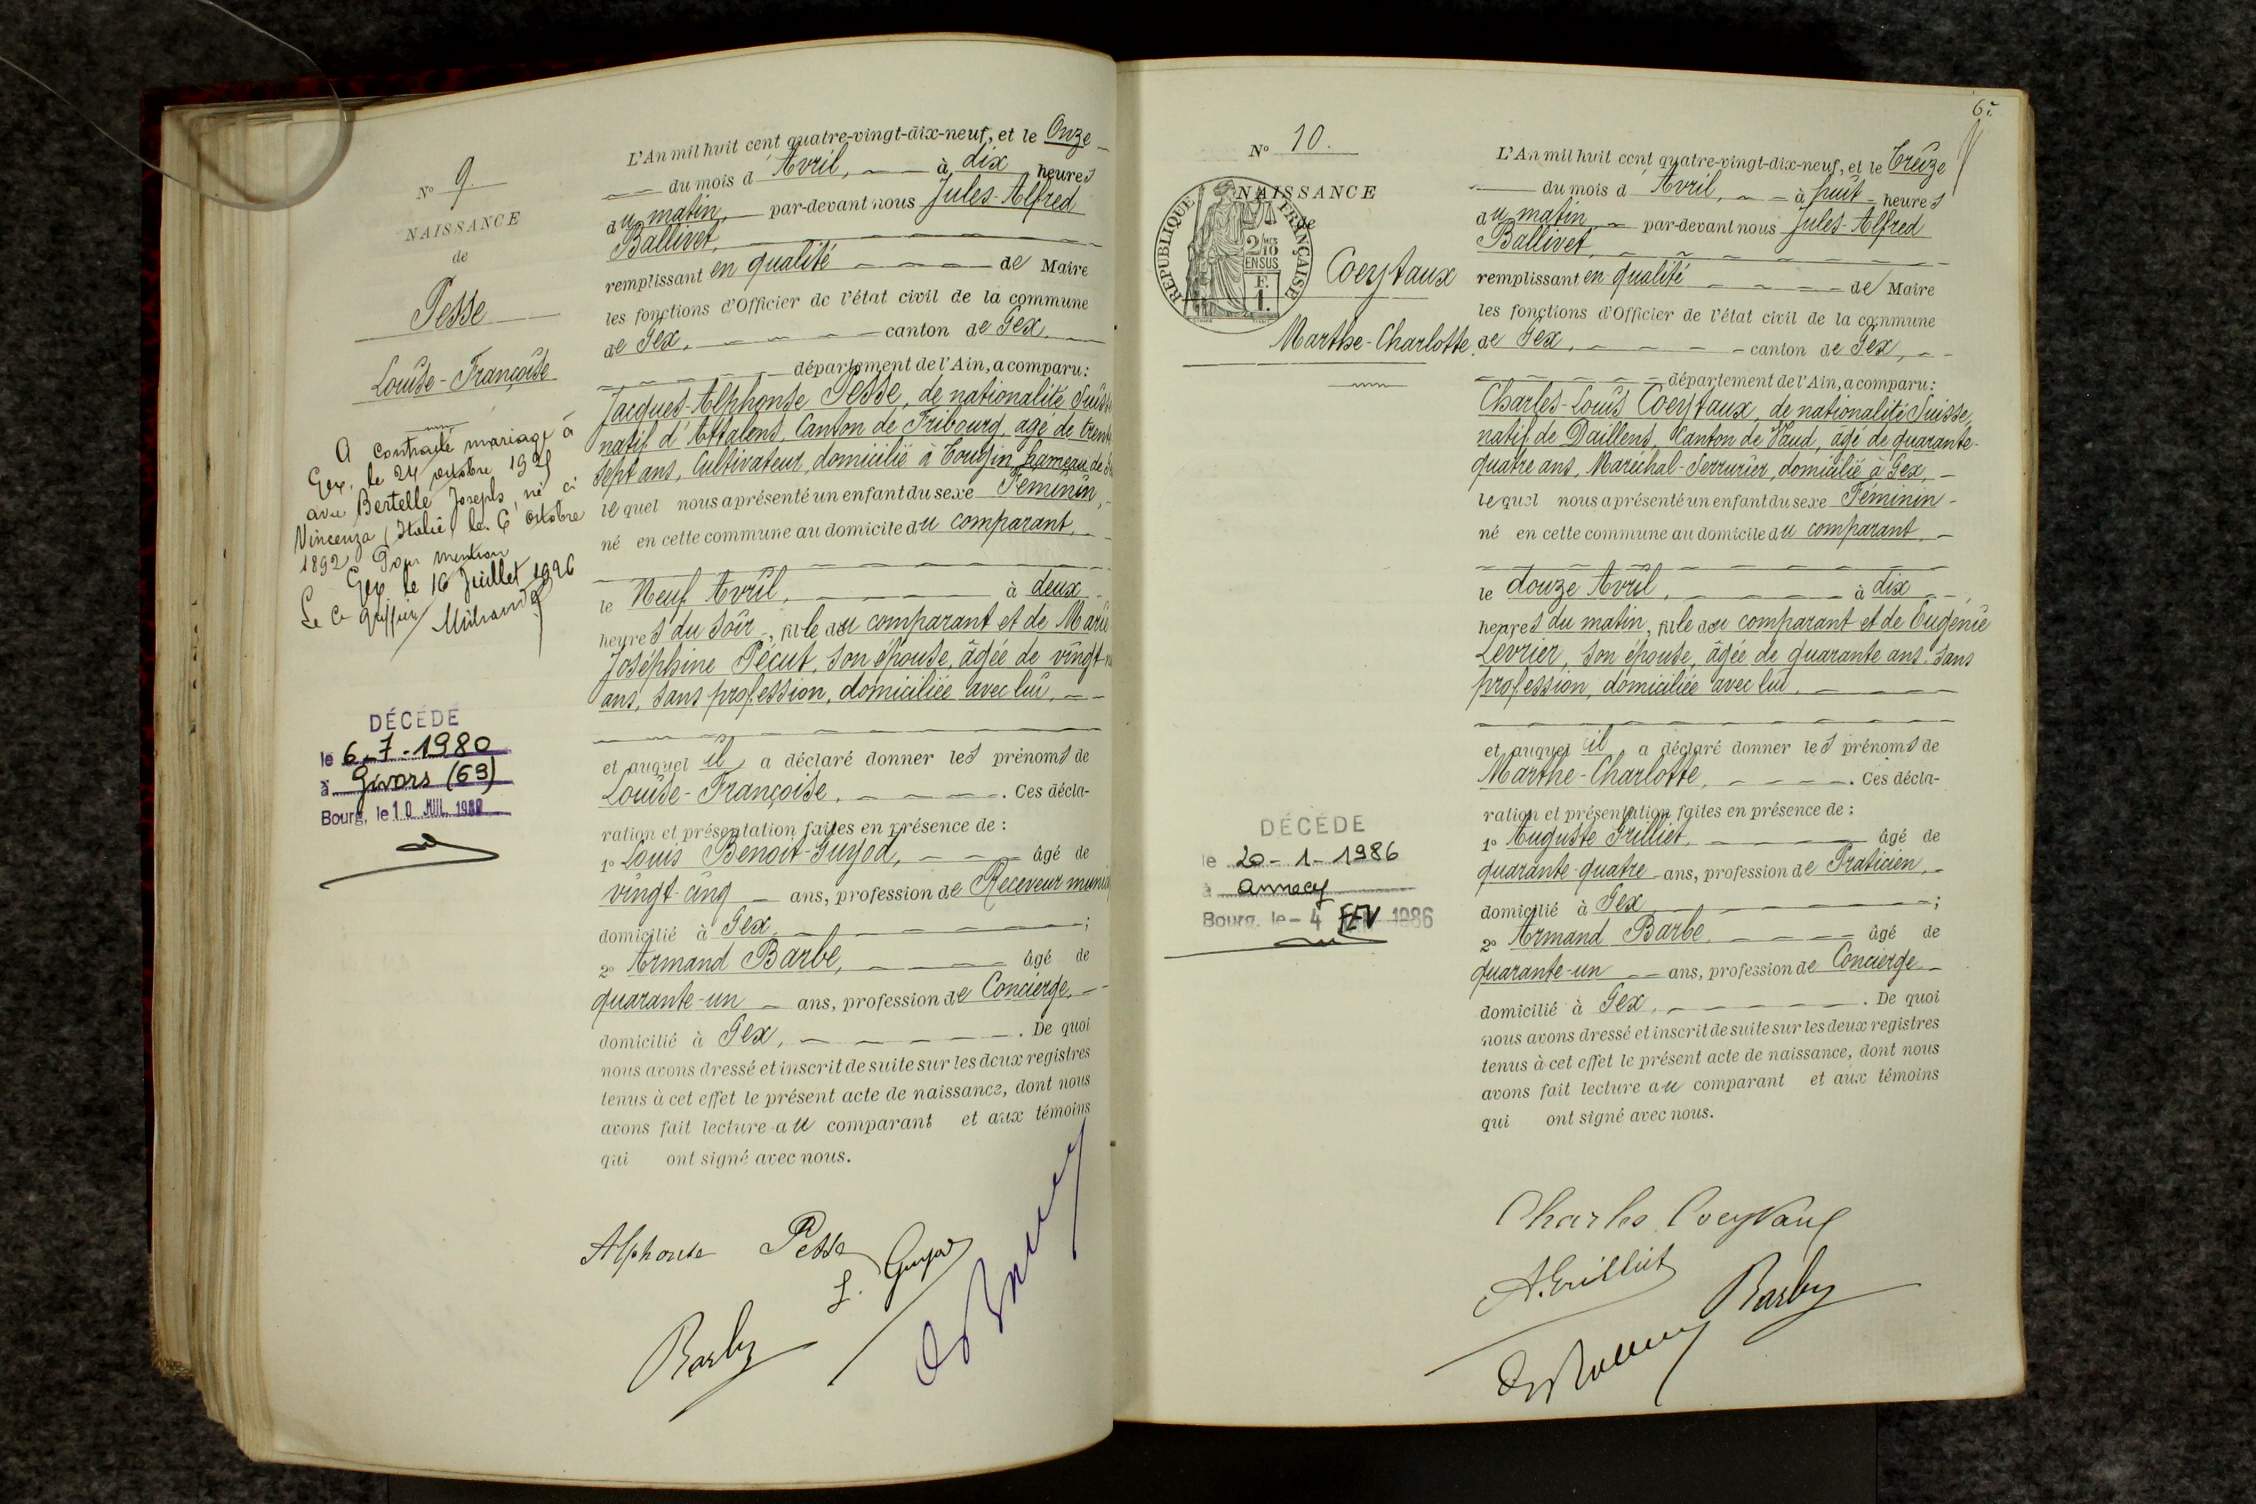 Nº 9
NAISSANCE
de
Pesse
Louise-Françoise
A contracté mariage à
Gex, le 24 octobre 1925
avec Bertelle Joseph, né à
Vincenza (Italie) le 6 octobre
1892. Pour mention
Gex le 16 Juillet 1926
Le Cis Greffier
DÉCÉDÉ
le 6-7-1980
à Givors (69)
Bourg, le 10 JUIL 1980
L'An mil huit cent quatre-vingt-dix-neuf, et le Onze
du mois d'Avril, à dix heures
du matin, par-devant nous Jules-Alfred
Ballivet,
remplissant en qualité de Maire
les fonctions d'Officier de l'état civil de la commune
de Gex, canton de Gex,
département de l'Ain, a comparu:
Jacques-Alphonse Pesse, de nationalité Suisse
natif d'Attalens, Canton de Fribourg, âgé de trente
sept ans, Cultivateur, domicilié à Tougin hameau de
lequel nous a présenté un enfant du sexe Féminin,
né en cette commune au domicile du comparant,
le Neuf Avril, à deux
heures du soir, fille du comparant et de Marie
Joséphine Pécut, son épouse, âgée de vingt-
ans, sans profession, domiciliée avec lui,
et auquel il a déclaré donner les prénoms de
Louise-Françoise. Ces décla-
ration et présentation faites en présence de :
1º Louis Benoit-Guyod, âgé de
vingt-cinq ans, profession de Receveur munici
domicilié à Gex ;
2º Armand Barbe, âgé de
quarante-un ans, profession de Concierge,
domicilié à Gex, . De quoi
nous avons dressé et inscrit de suite sur les deux registres
tenus à cet effet le présent acte de naissance, dont nous
avons fait lecture au comparant et aux témoins
qui ont signé avec nous.
Alphonse Pesse
L. Guyod
Barbe
6.
Nº 10.
NAISSANCE
de
RÉPUBLIQUE FRANÇAISE
2/10 MES
EN SUS
F.
1.
Coeytaux
Marthe-Charlotte.
DÉCÉDÉ
le 20-1-1986
à Annecy
Bourg, le -4 FEV 1986
L'An mil huit cent quatre-vingt-dix-neuf, et le Treize
du mois d'Avril, à huit heures
du matin par-devant nous Jules-Alfred
Ballivet,
remplissant en qualité de Maire
les fonctions d'Officier de l'état civil de la commune
de Gex, canton de Gex,
département de l'Ain, a comparu:
Charles-Louis Coeytaux, de nationalité Suisse,
natif de Daillens, Canton de Vaud, âgé de quarante-
quatre ans, Maréchal-Serrurier, domicilié à Gex,
lequel nous a présenté un enfant du sexe Féminin
né en cette commune au domicile du comparant,
le douze Avril, à dix
heures du matin, fille du comparant et de Eugénie
Levrier, son épouse, âgée de quarante ans, sans
profession, domiciliée avec lui,
et auquel il a déclaré donner les prénoms de
Marthe-Charlotte, . Ces décla-
ration et présentation faites en présence de :
1º Auguste Grilliet, âgé de
quarante-quatre ans, profession de Praticien,
domicilié à Gex ;
2º Armand Barbe âgé de
quarante-un ans, profession de Concierge
domicilié à Gex, . De quoi
nous avons dressé et inscrit de suite sur les deux registres
tenus à cet effet le présent acte de naissance, dont nous
avons fait lecture au comparant et aux témoins
qui ont signé avec nous.
Charles Coeytaux
A. Grilliet
Barbe